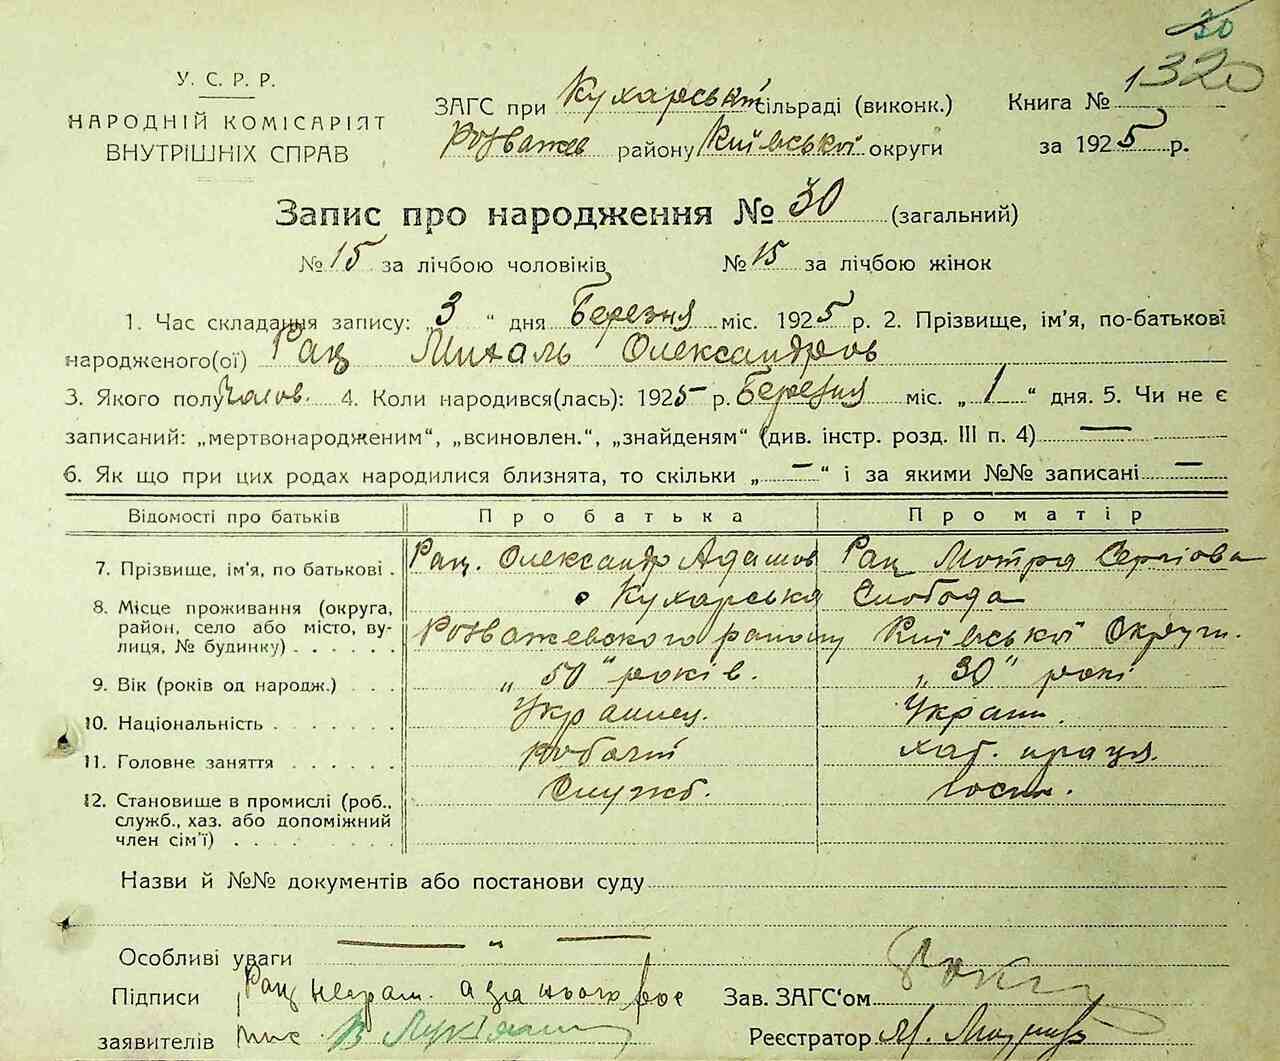 30
1320
У. С. Р. Р.
НАРОДНІЙ КОМІСАРІЯТ
ВНУТРІШНІХ СПРАВ
ЗАГС при Кухарській сільраді (виконк.)
Розважев району Київської округи
Книга №
за 1925 р.
Запис про народження № 30 (загальний)
№ 15 за лічбою чоловіків № 15 за лічбою жінок
1. Час складання запису: „3“ дня Березня міс. 1925 р. 2. Прізвище, ім'я, по-батькові
народженого(ої) Рац Михаль Олександров
3. Якого полу Чолов. 4. Коли народився(лась): 1925 р. Березня міс. „1“ дня. 5. Чи не є
записаний: „мертвонародженим“, „всиновлен.“, „знайденям“ (див. інстр. розд. III п. 4) —
6. Як що при цих родах народилися близнята, то скільки „—“ і за якими №№ записані —
Відомості про батьків Про батька Про матір
7. Прізвище, ім'я, по батькові . Рац. Олександр Адамов Рац Мотря Сергіова
8. Місце проживання (округа, район, село або місто, вулиця, № будинку) . . . . . . Кухарська Слобода
Розважевского району Київської Округи.
9. Вік (років од народж.) . . . „50“ років. „30“ рокі
10. Національність . . . . . . Украинец. Украин.
11. Головне заняття . . . . . . робочій хат. праця.
12. Становище в промислі (роб., служб., хаз. або допоміжний член сім'ї) . . . . . . Служб. госп.
Назви й №№ документів або постанови суду
Особливі уваги — " —
Підписи Рац неграм. а за нього
заявителів
Зав. ЗАГС'ом
Реєстратор